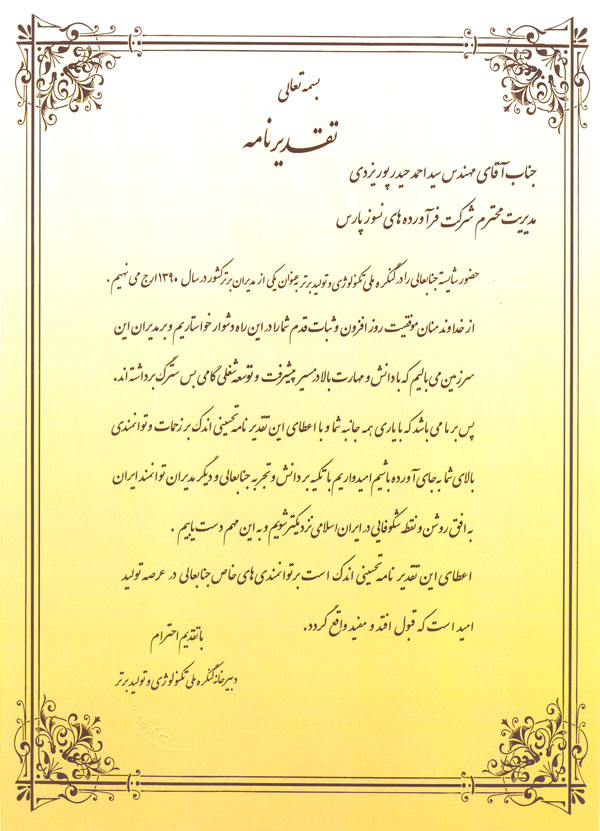 بسمه تعالی
تقدیرنامه
جناب آقای مهندس سید احمد حیدرپور یزدی
مدیریت محترم شرکت فرآورده های نسوز پارس
حضور شایسته جنابعالی را در کنگره ملی تکنولوژی و تولید برتر بعنوان یکی از مدیران برتر کشور در سال ۱۳۹۰ ارج می نهیم .
از خداوند منان موفقیت روز افزون و ثبات قدم شما را در این راه دشوار خواستاریم و بر مدیران این
سرزمین می بالیم که با دانش و مهارت بالا در مسیر پیشرفت و توسعه شغلی گامی بس سترگ برداشته اند.
پس بر ما می باشد که با یاری همه جانبه شما و با اعطای این تقدیر نامه تحسینی اندک بر زحمات و توانمندی
بالای شما به جای آورده باشیم امیدواریم با تکیه بر دانش و تجربه جنابعالی و دیگر مدیران توانمند ایران
به افق روشن و نقطه شکوفایی در ایران اسلامی نزدیکتر شویم و به این مهم دست یابیم .
اعطای این تقدیر نامه تحسینی اندک است بر توانمندی های خاص جنابعالی در عرصه تولید
امید است که قبول افتد و مفید واقع گردد.
با تقدیم احترام
دبیرخانه کنگره ملی تکنولوژی و تولید برتر